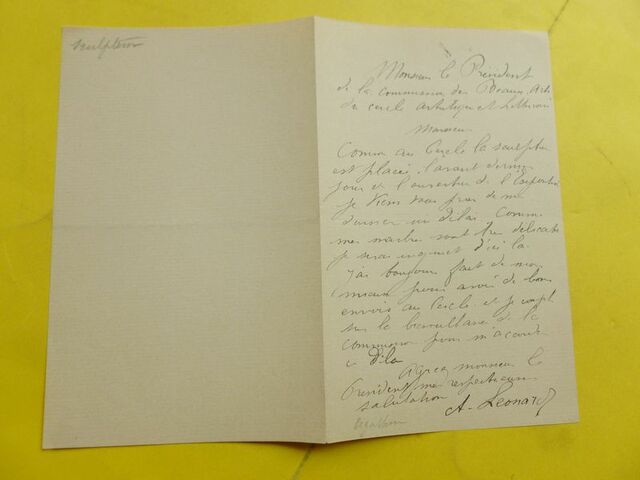 sculpteur
Monsieur le Président
de la commission des Beaux Arts
du cercle artistique et littéraire
Monsieur
Comme au Cercle la sculpture
est placée l'avant dernier
jour et l'ouverture de l'Exposition
je viens vous prier de me
donner un délai. Comme
mes marbres sont très délicats
je serai inquiet d'ici la
j'ai toujours fait de mon
mieux pour avoir de bons
envois au Cercle et je compte
sur la bienveillance de la
commission pour m'accorder
ce délai
Agréez monsieur le
Président mes respectueuses
salutation
A. Leonard